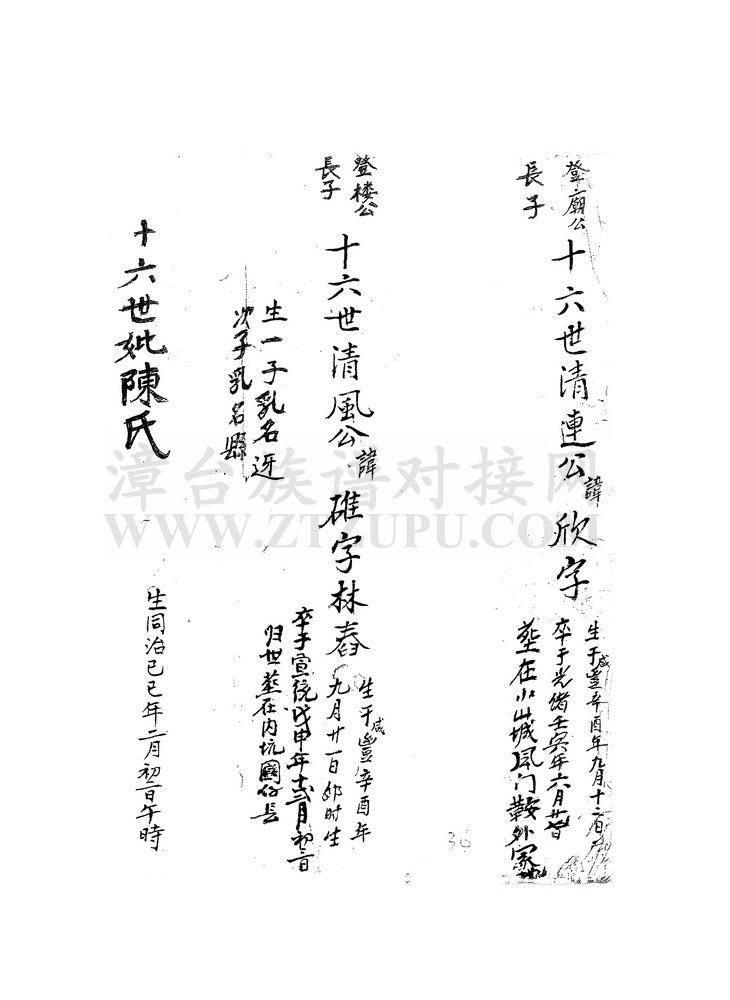 登廟公
長子
十六世清連公諱欣字
生于咸豐辛酉年九月十二日
卒于光緒壬寅年六月廿
塟在小山城風门鞍外家
登楼公
長子
十六世清風公諱碓字林舂
生于咸豐辛酉年
九月廿一日卯时生
卒于宣統戊申年十二月初二日
归世塟在内坑
生一子乳名迓
次子乳名縣
十六世妣陳氏
生同治己巳年二月初二日午時
36
漳台族谱对接网
WWW.ZTZUPU.COM